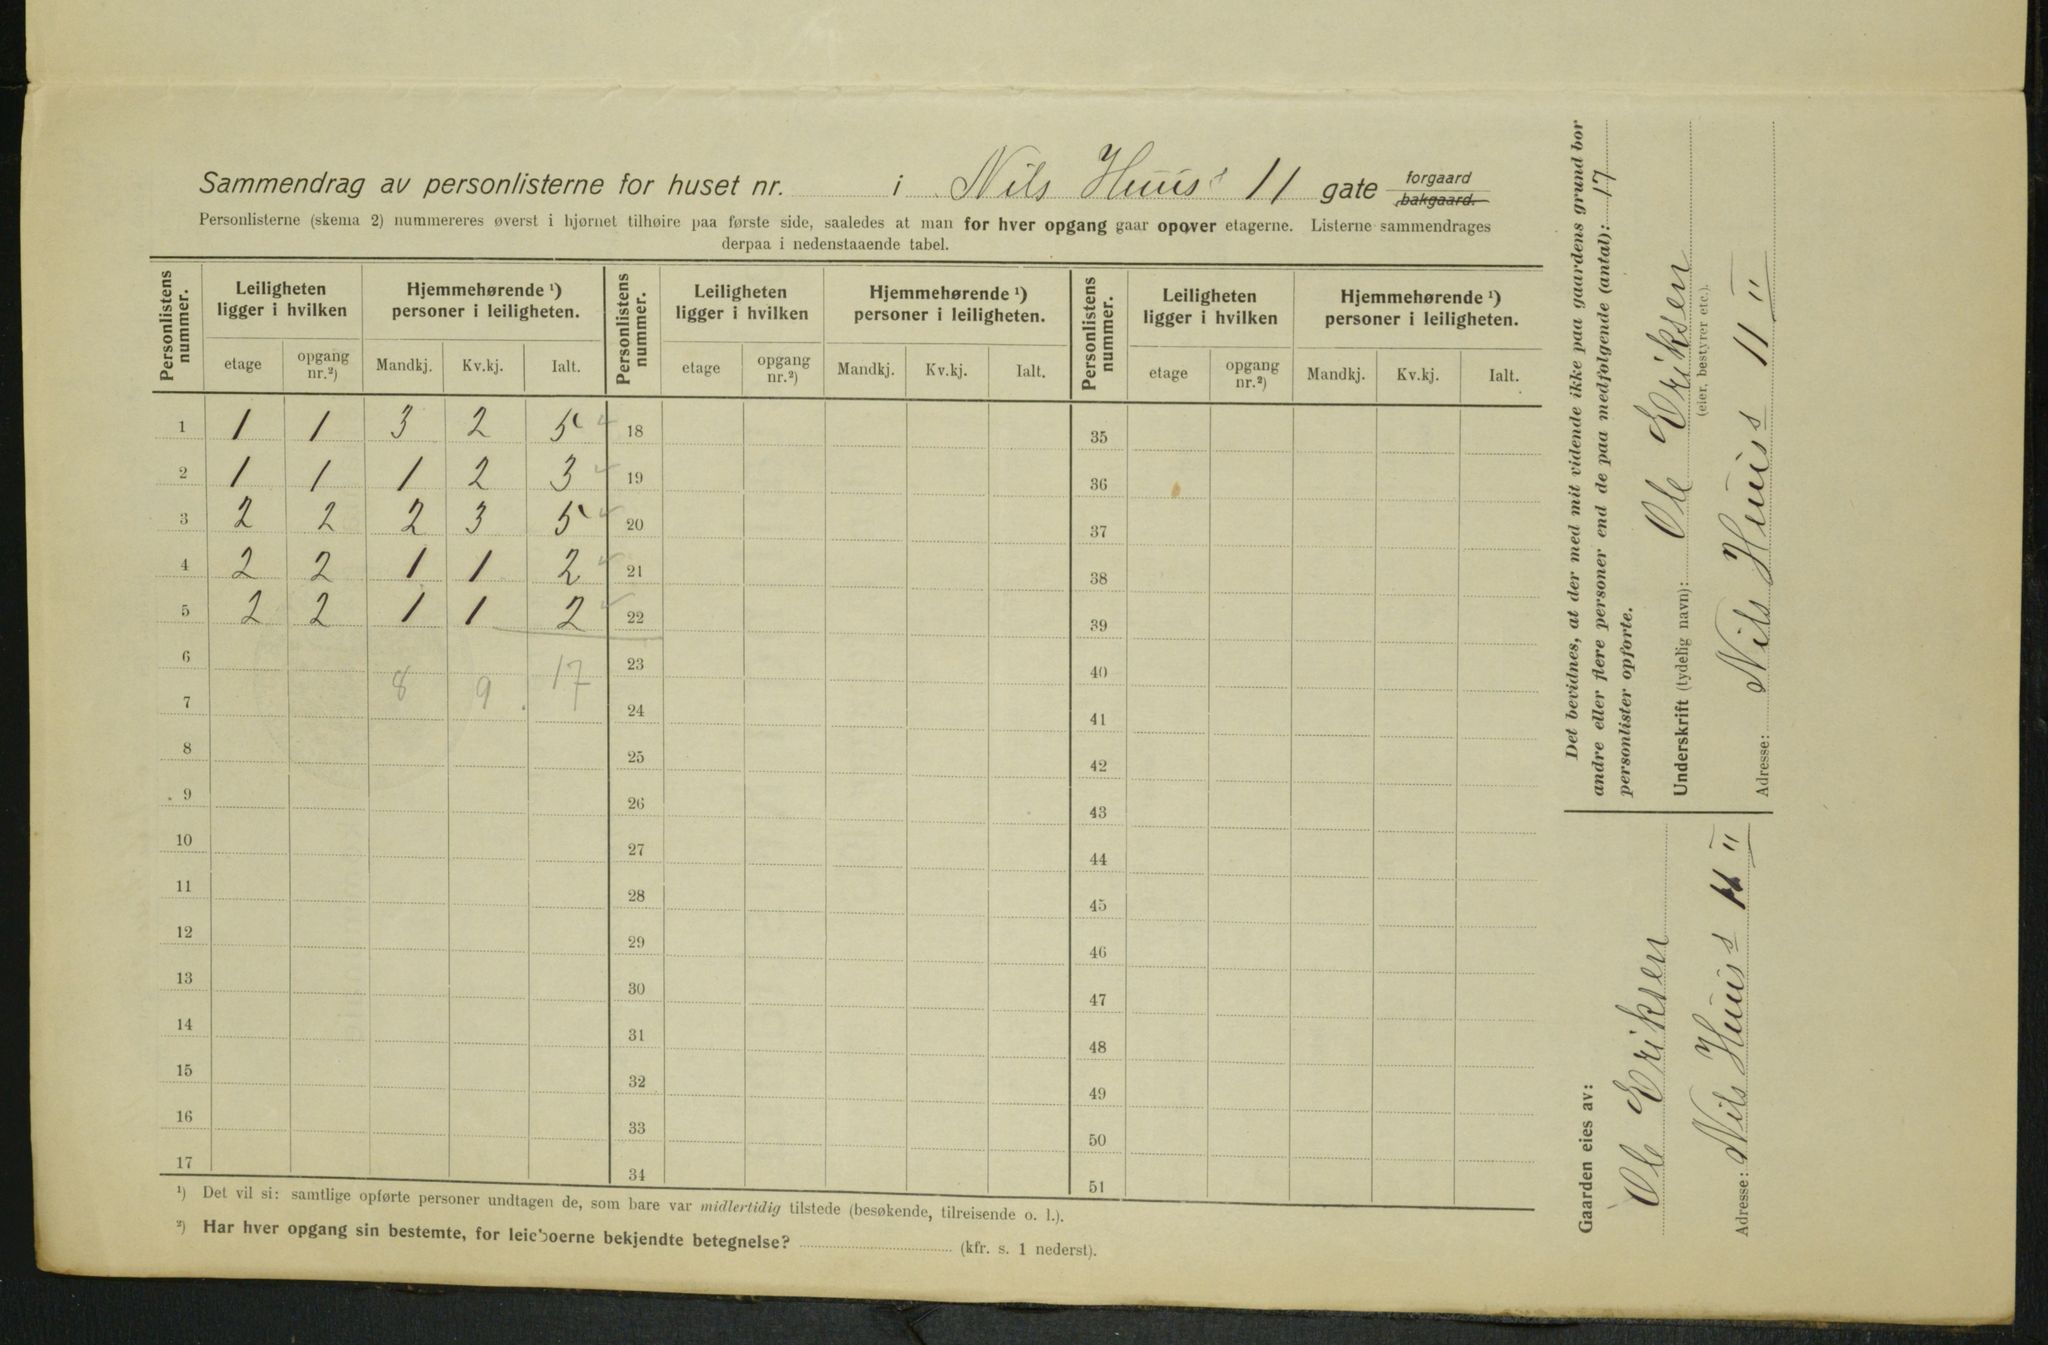 Sammendrag av personlisterne for huset nr. i Nils Huus 11 gate forgaard bakgaard.
Personlisterne (skema 2) nummereres øverst i hjørnet tilhøire paa første side, saaledes at man for hver opgang gaar opover etagerne. Listerne sammendrages
derpaa i nedenstaaende tabel.
Personlistens nummer. Leiligheten ligger i hvilken Hjemmehørende ¹) personer i leiligheten. Personlistens nummer. Leiligheten ligger i hvilken Hjemmehørende ¹) personer i leiligheten. Personlistens nummer. Leiligheten ligger i hvilken Hjemmehørende ¹) personer i leiligheten.
etage opgang nr.²) Mandkj. Kv.kj. Ialt. etage opgang nr.²) Mandkj. Kv.kj. Ialt. etage opgang nr.²) Mandkj. Kv.kj. Ialt.
1 1 1 3 2 5 18 35
2 1 1 1 2 3 19 36
3 2 2 2 3 5 20 37
4 2 2 1 1 2 21 38
5 2 2 1 1 2 22 39
6 23 40
8 9 17
7 24 41
8 25 42
9 26 43
10 27 44
11 28 45
12 29 46
13 30 47
14 31 48
15 32 49
16 33 50
17 34 51
¹) Det vil si: samtlige opførte personer undtagen de, som bare var midlertidig tilstede (besøkende, tilreisende o. l.).
²) Har hver opgang sin bestemte, for leieboerne bekjendte betegnelse? (kfr. s. 1 nederst).
Det bevidnes, at der med mit vidende ikke paa gaardens grund bor
andre eller flere personer end de paa medfolgende (antal): 17
personlister opforte.
Underskrift (tydelig navn): Ole Eriksen
(eier, bestyrer etc.).
Adresse: Nils Huus 11 II
Gaarden eies av:
Ole Eriksen
Adresse: Nils Huus 11 II